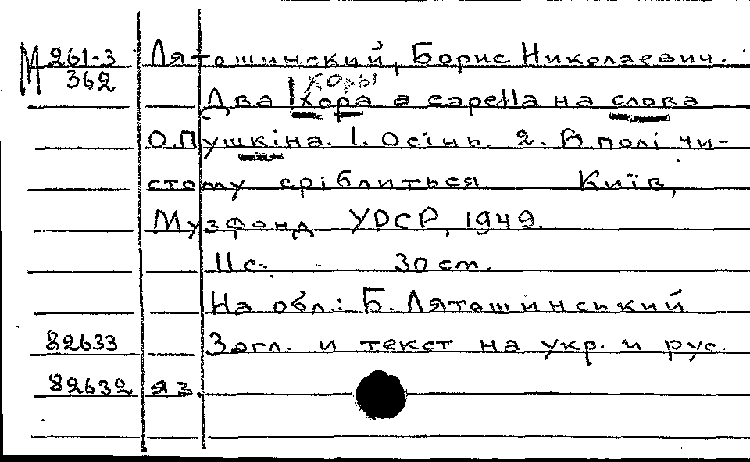 М 261-3 Лятошинский, Борис Николаевич.
362 хоры
Два хора a capella на слова
О.Пушкіна. 1. Осінь. 2. В полі чи-
стому сріблиться Київ,
Музфонд УРСР, 1949.
11 с. 30 cm.
На обл.: Б. Лятошинський
82633 Загл. и текст на укр. и рус.
82632 яз.